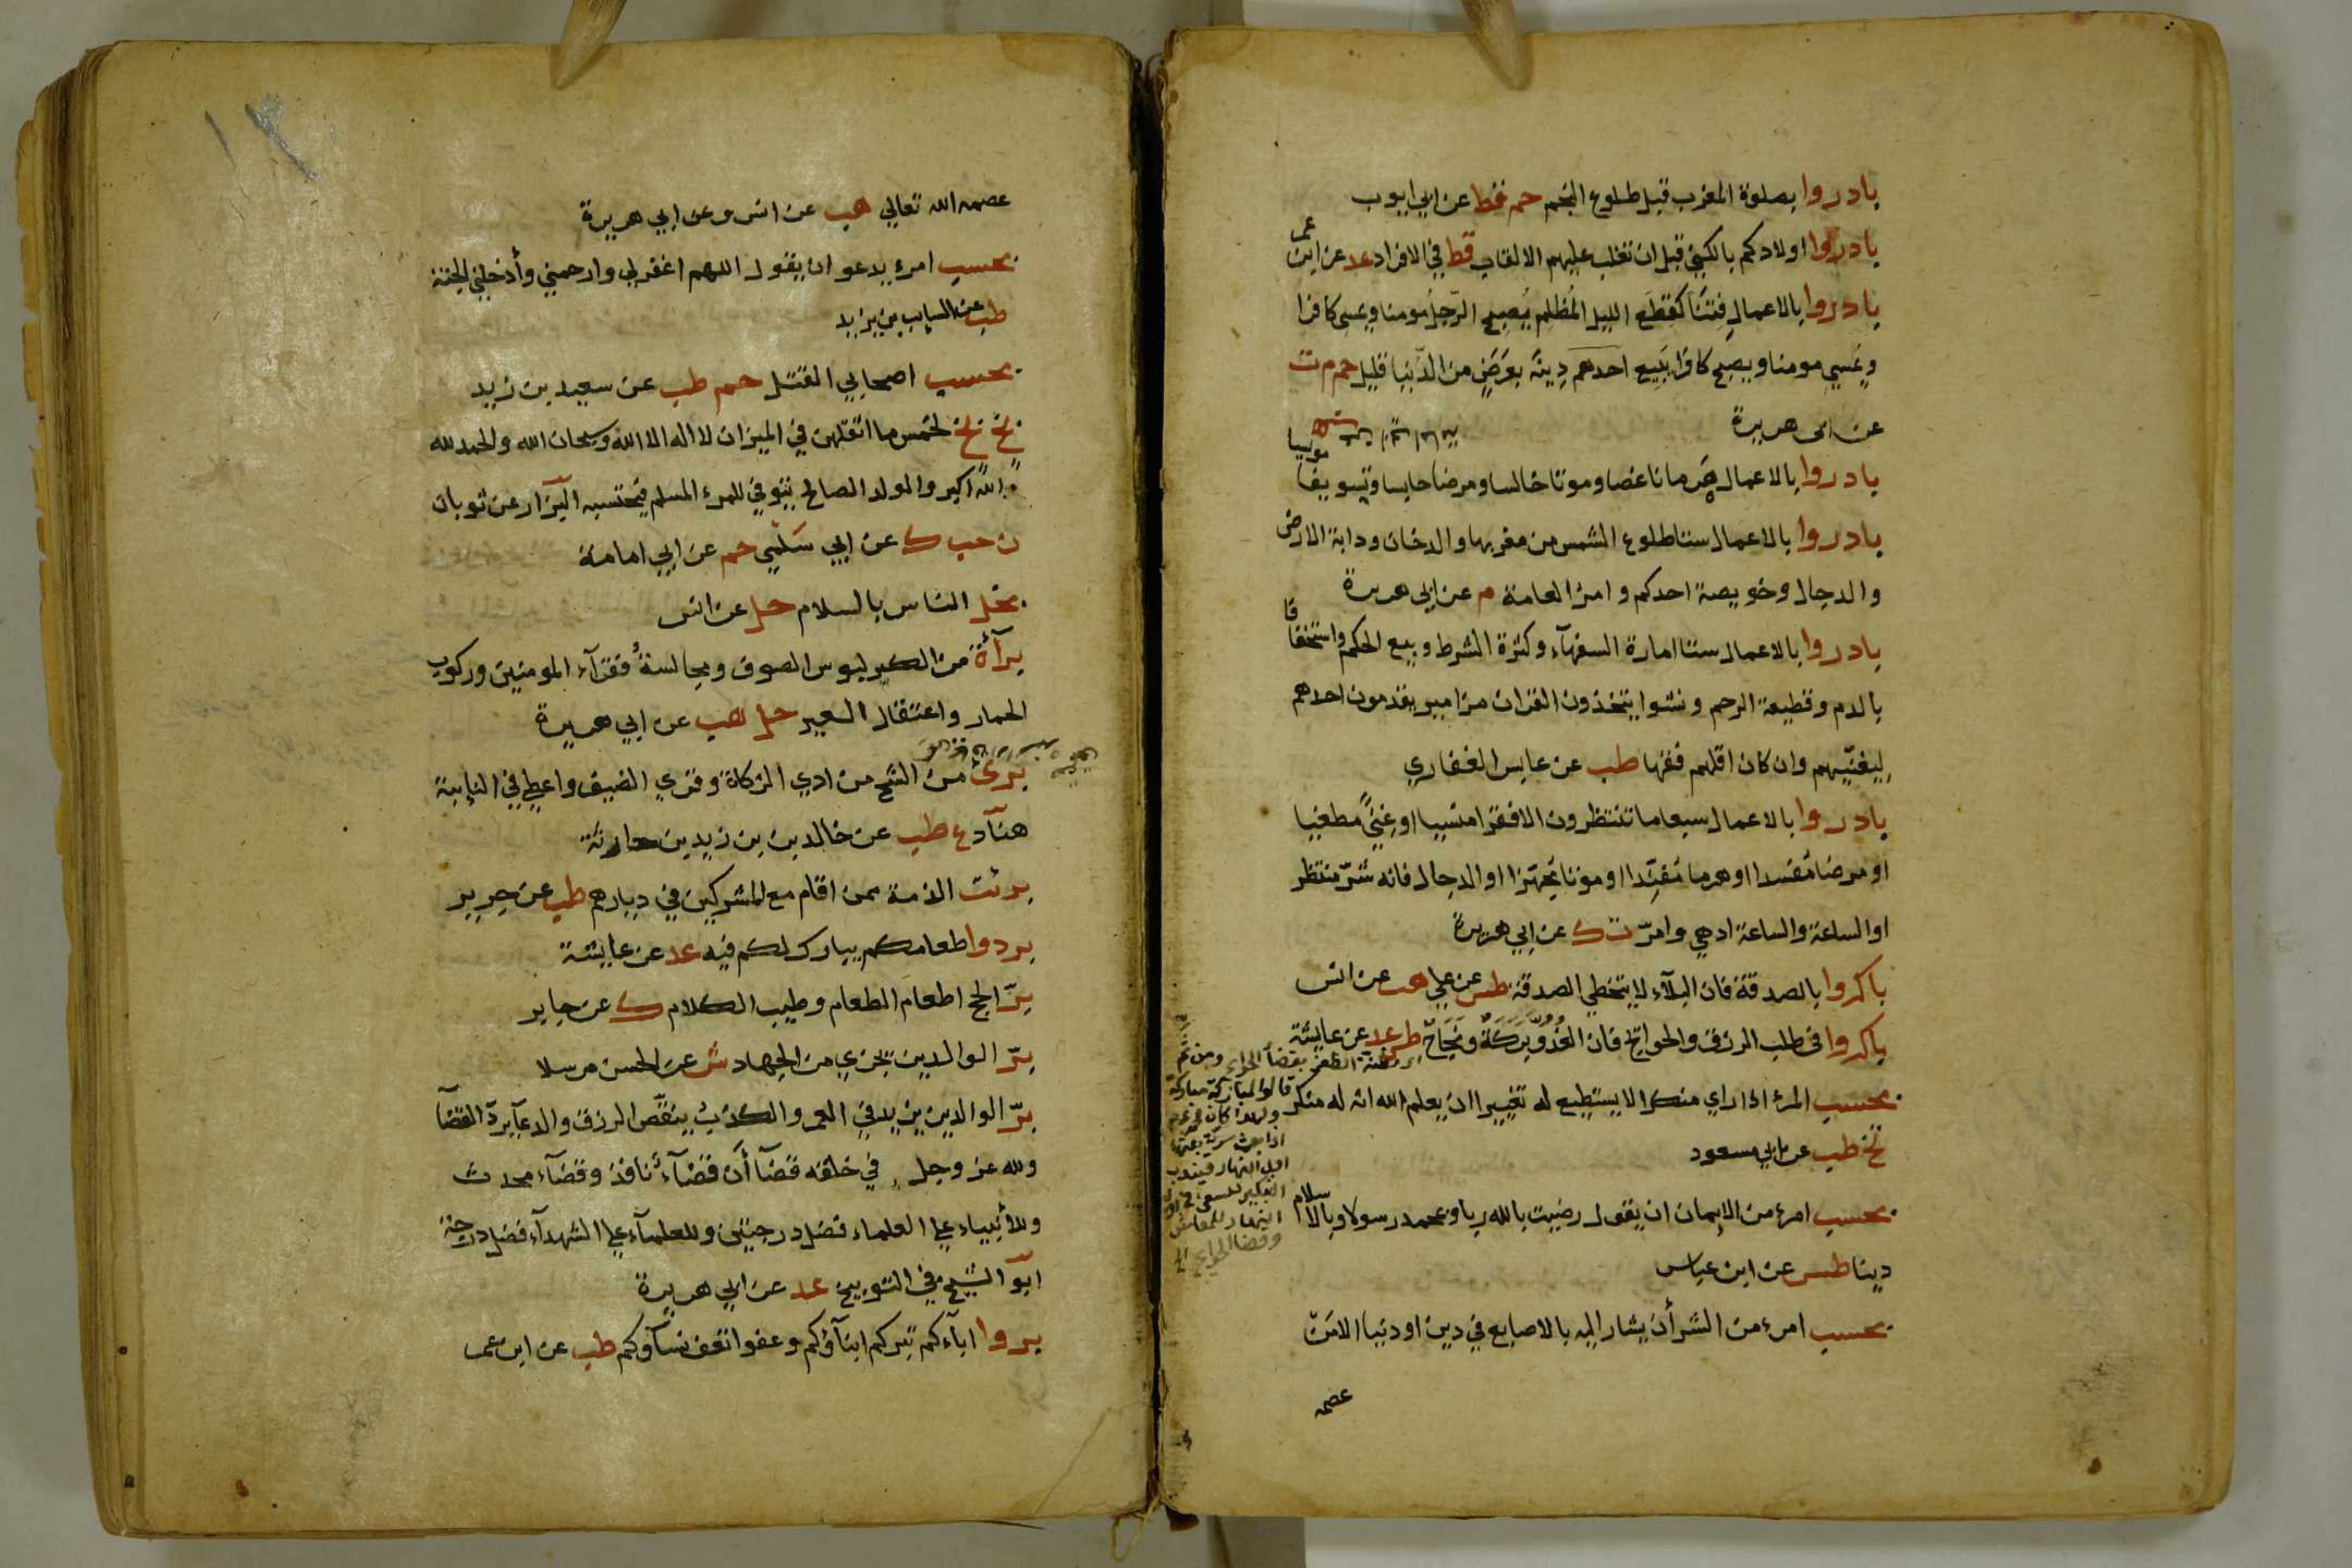 بادروا بصلوة المغرب قبل طلوع النجم حم قط عن ابي ايوب
بادروا اولادكم بالكنى قبل ان تغلب عليهم الالقاب قط في الافراد عد عن ابن عمر
بادروا بالاعمال فتنا كقطع الليل المظلم يصبح الرجل مومنا ويمسى كافرا
ويمسي مومنا ويصبح كافرا يبيع احدهم دينه بعرض من الدنيا قليل حم م ت
عن ابى هريرة
بادروا بالاعمال هرما ناغصا وموتا خالسا ومرضا حابسا وتسويفا
بادروا بالاعمال ستا طلوع الشمس من مغربها والدخان ودابة الارض
والدجال وخويصة احدكم وامر العامة م عن ابي هريرة
بادروا بالاعمال ستا امارة السفهآء وكثرة الشرط وبيع الحكم واستخفافا
بالدم وقطيعة الرحم ونشوا يتخذون القران مزامير يقدمون احدهم
ليغنيهم وان كان اقلهم فقها طب عن عابس الغفاري
بادروا بالاعمال سبعا ما تنتظرون الا فقرا منسيا او غنى مطغيا
او مرضا مفسدا او هرما مفندا او موتا مجهزا او الدجال فانه شر منتظر
او الساعة والساعة ادهي وامر ت ك عن ابي هريرة
باكروا بالصدقة فان البلآء لا يتخطي الصدقة طس عن علي هب عن انس
باكروا في طلب الرزق والحوائج فان الغدو بركة ونجاح طس عد عن عايشة
بحسب المرء اذا راي منكرا لا يستطيع له تغييرا ان يعلم الله انه له منكر
تخ طب عن ابي مسعود
بحسب امرء من الايمان ان يقول رضيت بالله ربا وبمحمد رسولا وبالاسلام
دينا طس عن ابن عباس
بحسب امرء من الشر أن يشار اليه بالاصابع في دين او دنيا الا من
عصمه
ومن ثم
قالوا المباكرة مباركة
اذا بعث سرية بعثها
اول النهار فيندب
التبكير للسعي في
النهار للمعاش
وقضا الحوايج
عصمه الله تعالي هب عن انس وعن ابي هريرة
بحسب امرء يدعو ان يقول اللهم اغفر لي وارحمني وأدخلني الجنة
طب عن السايب بن يزيد
بحسب اصحابي القتل حم طب عن سعيد بن زيد
بخ بخ لخمس ما اثقلهن في الميزان لا اله الا الله وسبحان الله والحمد لله
والله اكبر والولد الصالح يتوفي للمرء المسلم فيحتسبه البزار عن ثوبان
ن حب ك عن ابي سلمى حم عن ابي امامة
بخل الناس بالسلام حل عن انس
برآءة من الكبر لبوس الصوف ومجالسة فقرآء المومنين وركوب
الحمار واعتقال العير حل هب عن ابي هريرة
برئ من الشح من ادي الزكاة وقري الضيف واعطي في النايبة
هناد ع طب عن خالد بن زيد بن حارثة
برئت الذمة ممن اقام مع المشركين في ديارهم طب عن جرير
بردوا طعامكم يبارك لكم فيه عد عن عايشة
بر الحج اطعام الطعام وطيب الكلام ك عن جابر
بر الوالدين يجزي من الجهاد ش عن الحسن مرسلا
بر الوالدين يزيد في العمر والكذب ينقص الرزق والدعآ يرد القضآ
ولله عز وجل في خلقه قضآأن قضآء نافذ وقضآء محدث
وللأنبياء علي العلماء فضل درجتين وللعلمآء علي الشهدآء فضل درجة
ابو الشيخ في التوبيخ عد عن ابي هريرة
بروا ابآءكم تبركم ابنآؤكم وعفوا تعف نسآؤكم طب عن ابن عمر